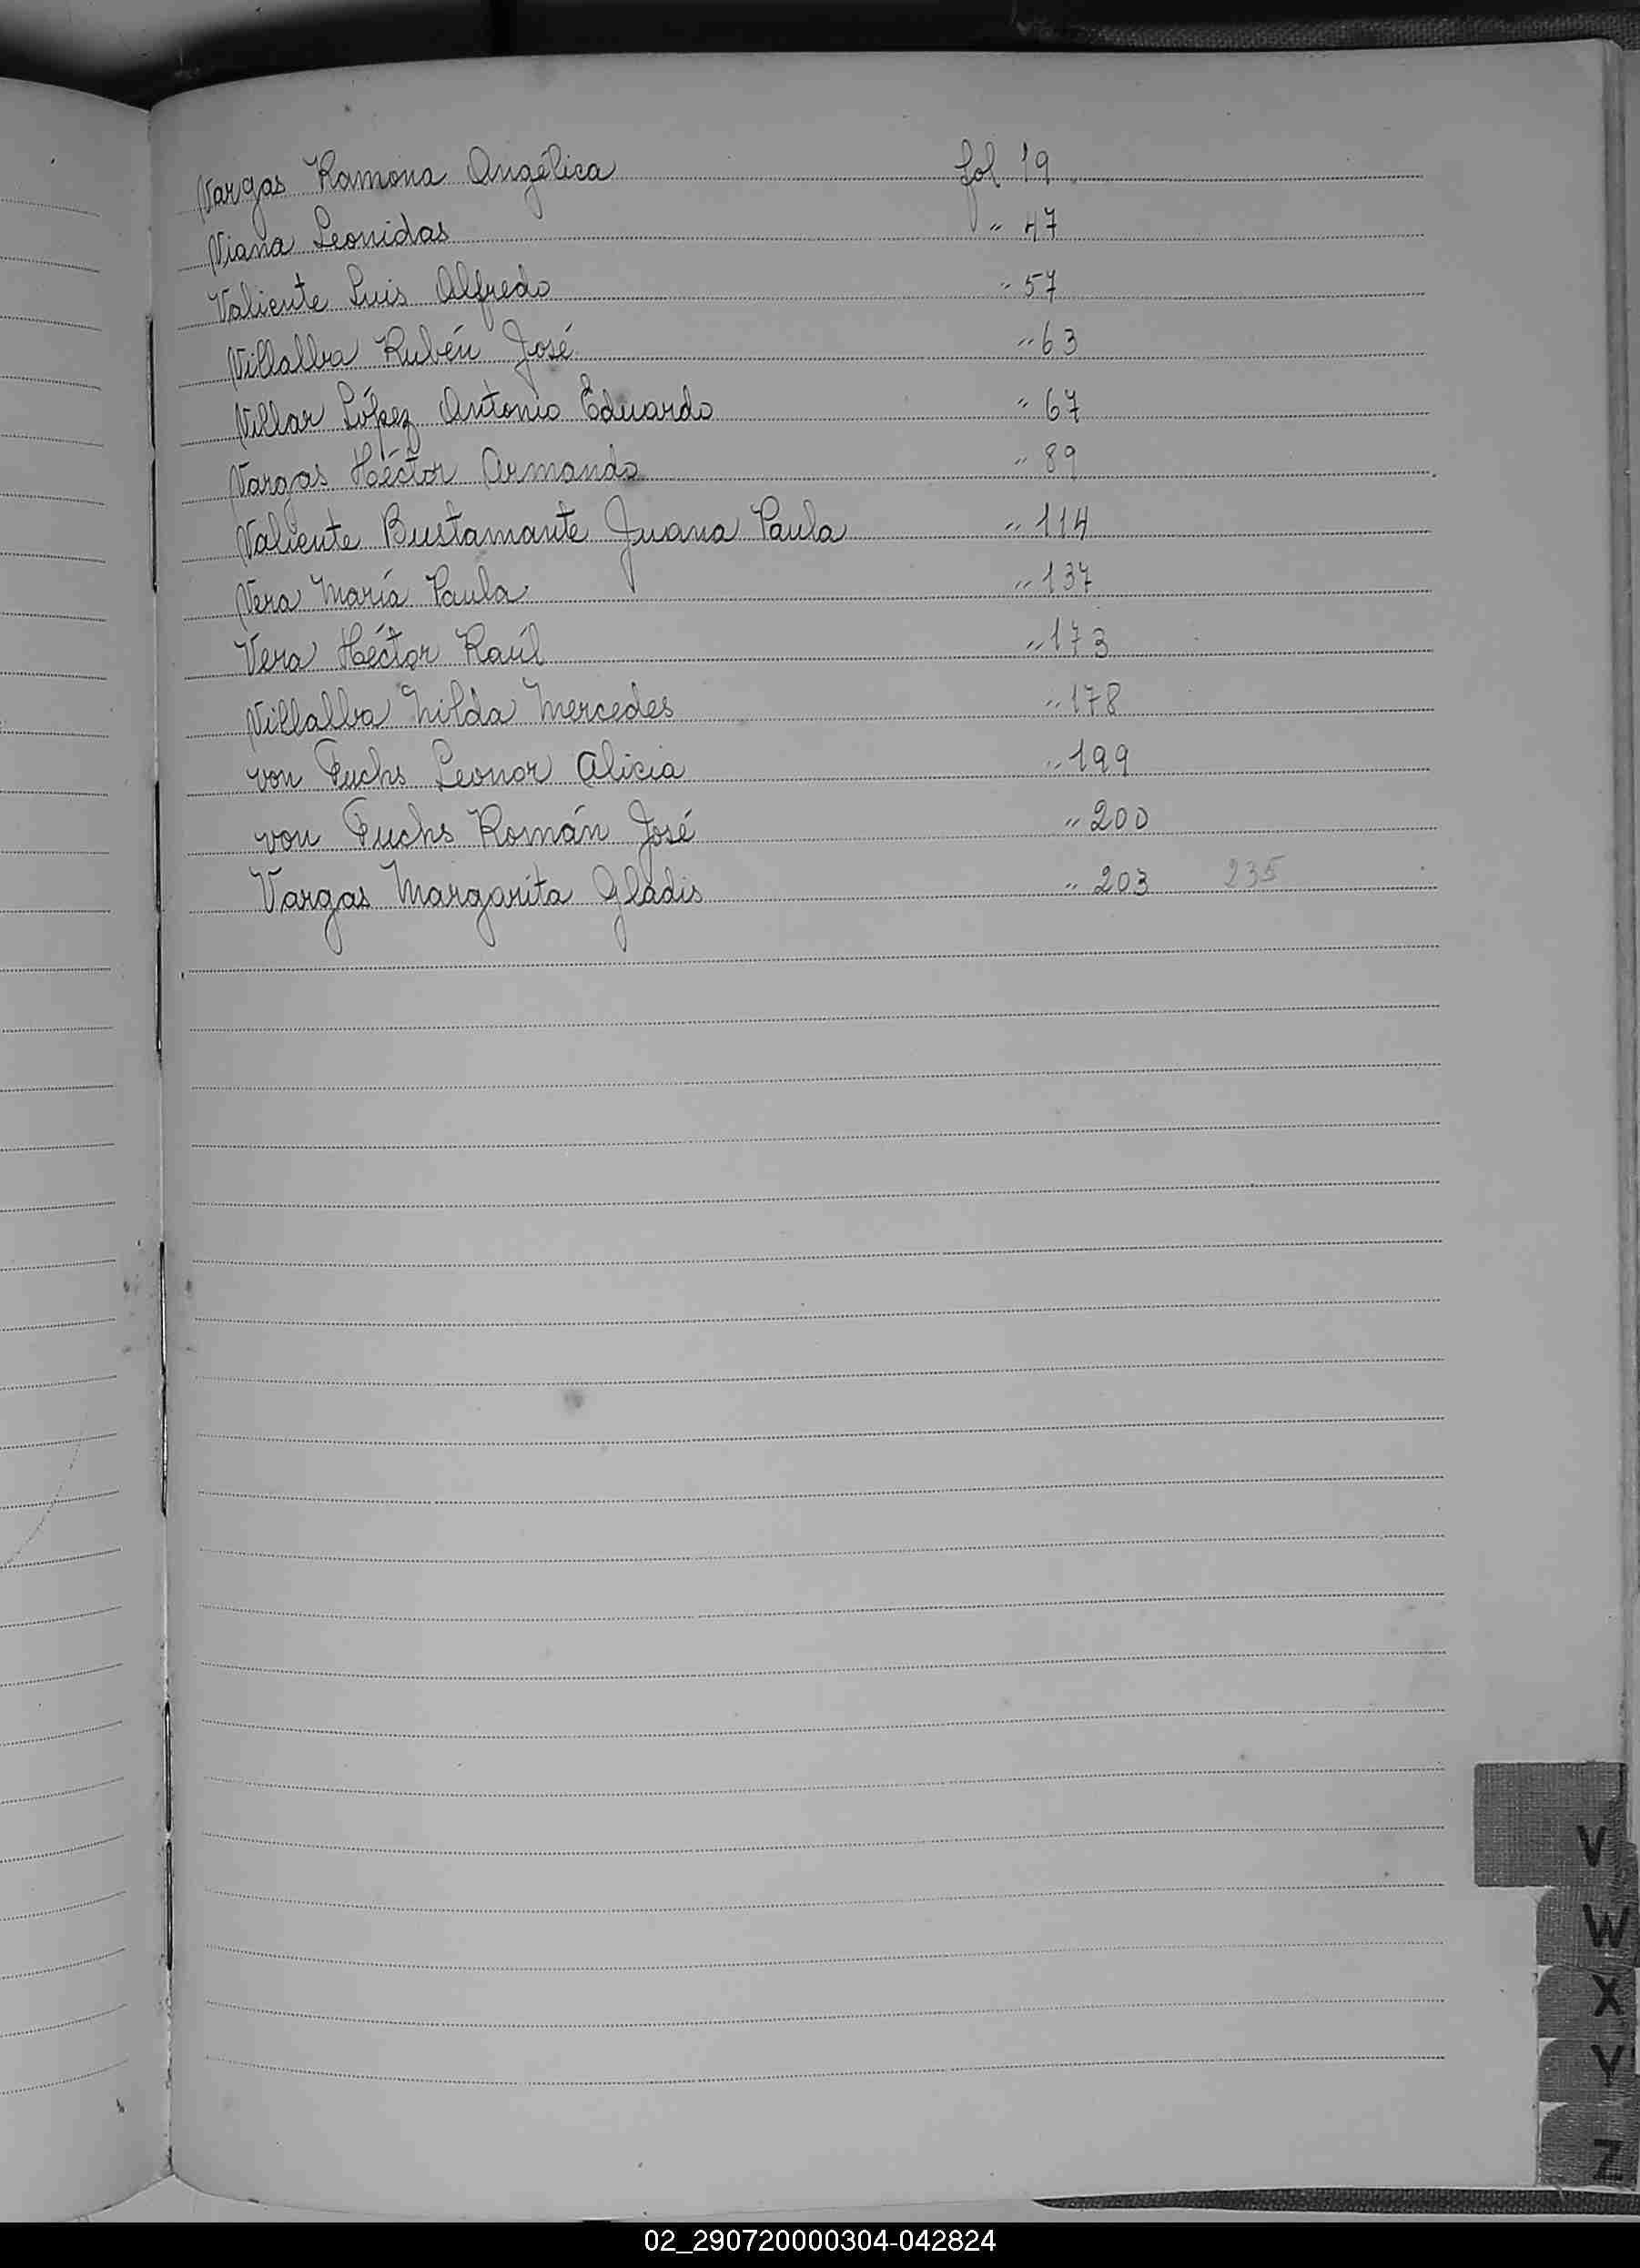 Vargas Ramona Angélica fol 19
Viana Leonidas " 47
Valiente Luis Alfredo " 57
Villalba Rubén José " 63
Villar López Antonio Eduardo " 67
Vargas Héctor Armando " 89
Valiente Bustamante Juana Paula " 114
Vera María Paula " 137
Vera Héctor Raúl " 173
Villalba Nilda Mercedes " 178
von Fuchs Leonor Alicia " 199
von Fuchs Román José " 200
Vargas Margarita Gladis " 203 235
V
W
X
Y
Z
02_290720000304-042824